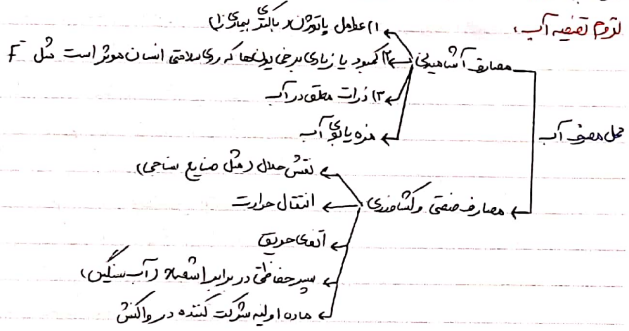 لزوم تصفیه آب:
محل مصرف آب
مصارف آشامیدنی
۱) عوامل پاتوژن (باکتری بیماری زا)
۲) کمبود یا زیادی برخی یون‌ها که روی سلامتی انسان موثر است مثل F⁻
۳) ذرات معلق در آب
مزه یا بوی آب
مصارف صنعتی و کشاورزی
نقش حلال (مثل صنایع نساجی)
انتقال حرارت
اطفای حریق
سپر حفاظتی در برابر اشعه (آب سنگین)
ماده اولیه شرکت کننده در واکنش